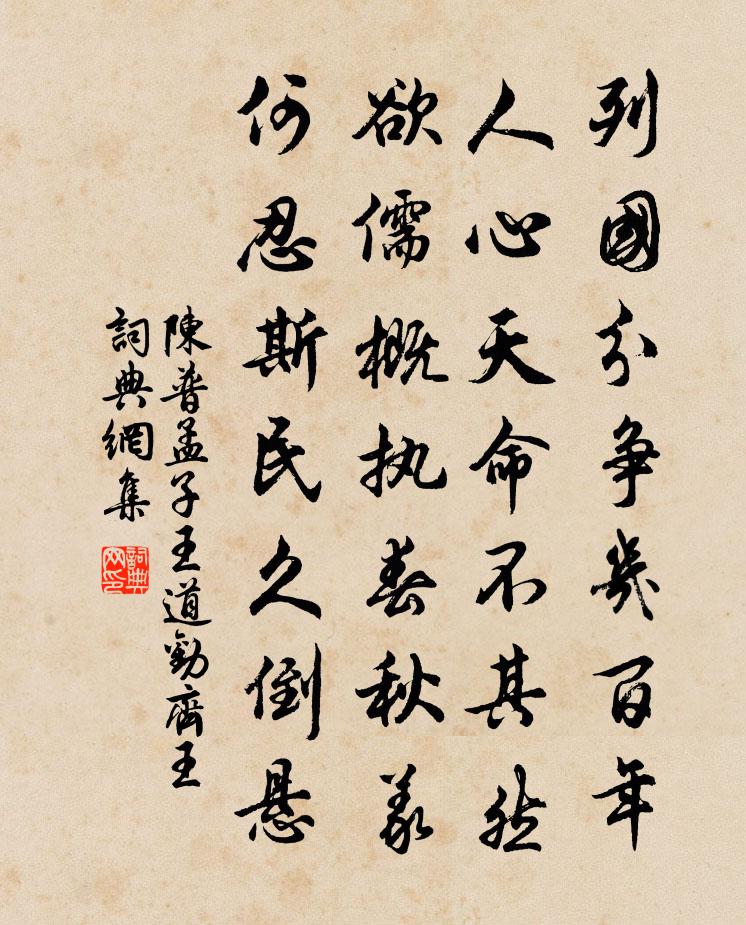 列國分争幾百年
人心天命不其然
欲儒概执春秋義
何忍斯民久倒悬
陳普孟子王道勸齊王
詞典網集
詞典网印